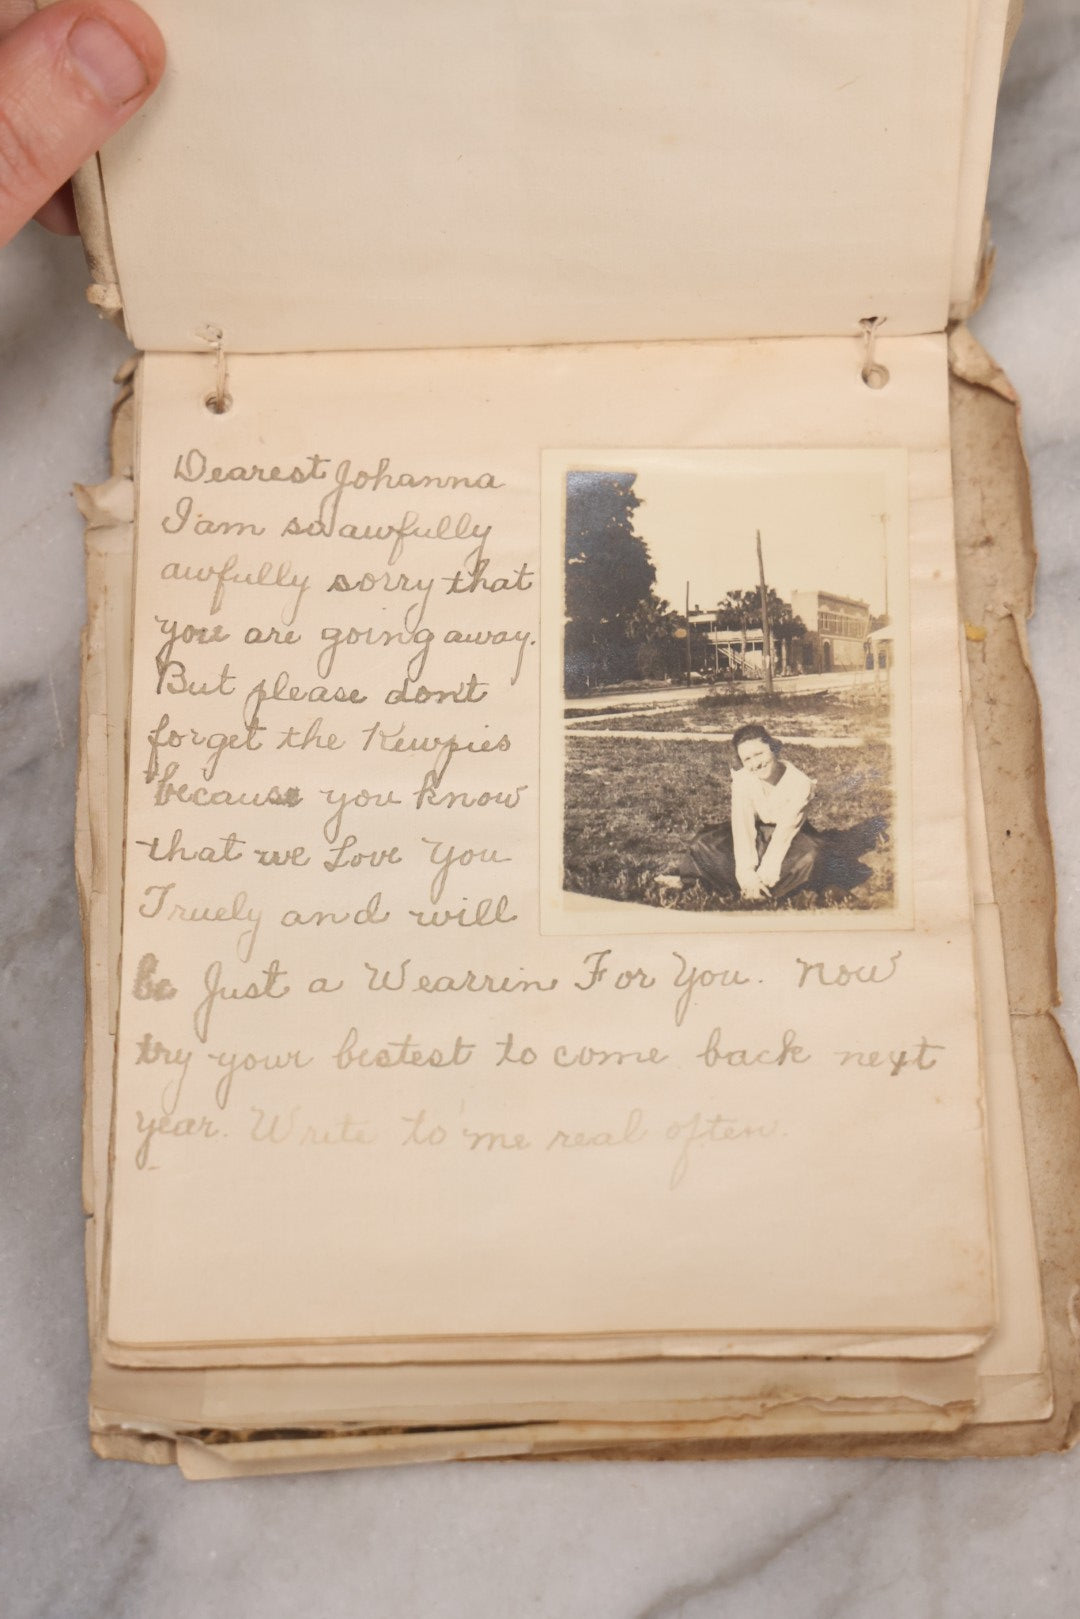 Dearest Johanna
I am so awfully
awfully sorry that
you are going away.
But please dont
forget the Kewpies
because you know
that we Love You
Truely and will
be Just a Wearrin For You. Now
try your bestest to come back next
year. Write to me real often.